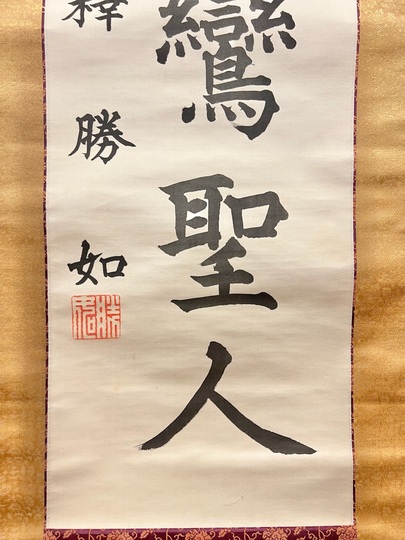 鸞聖人
釋勝如